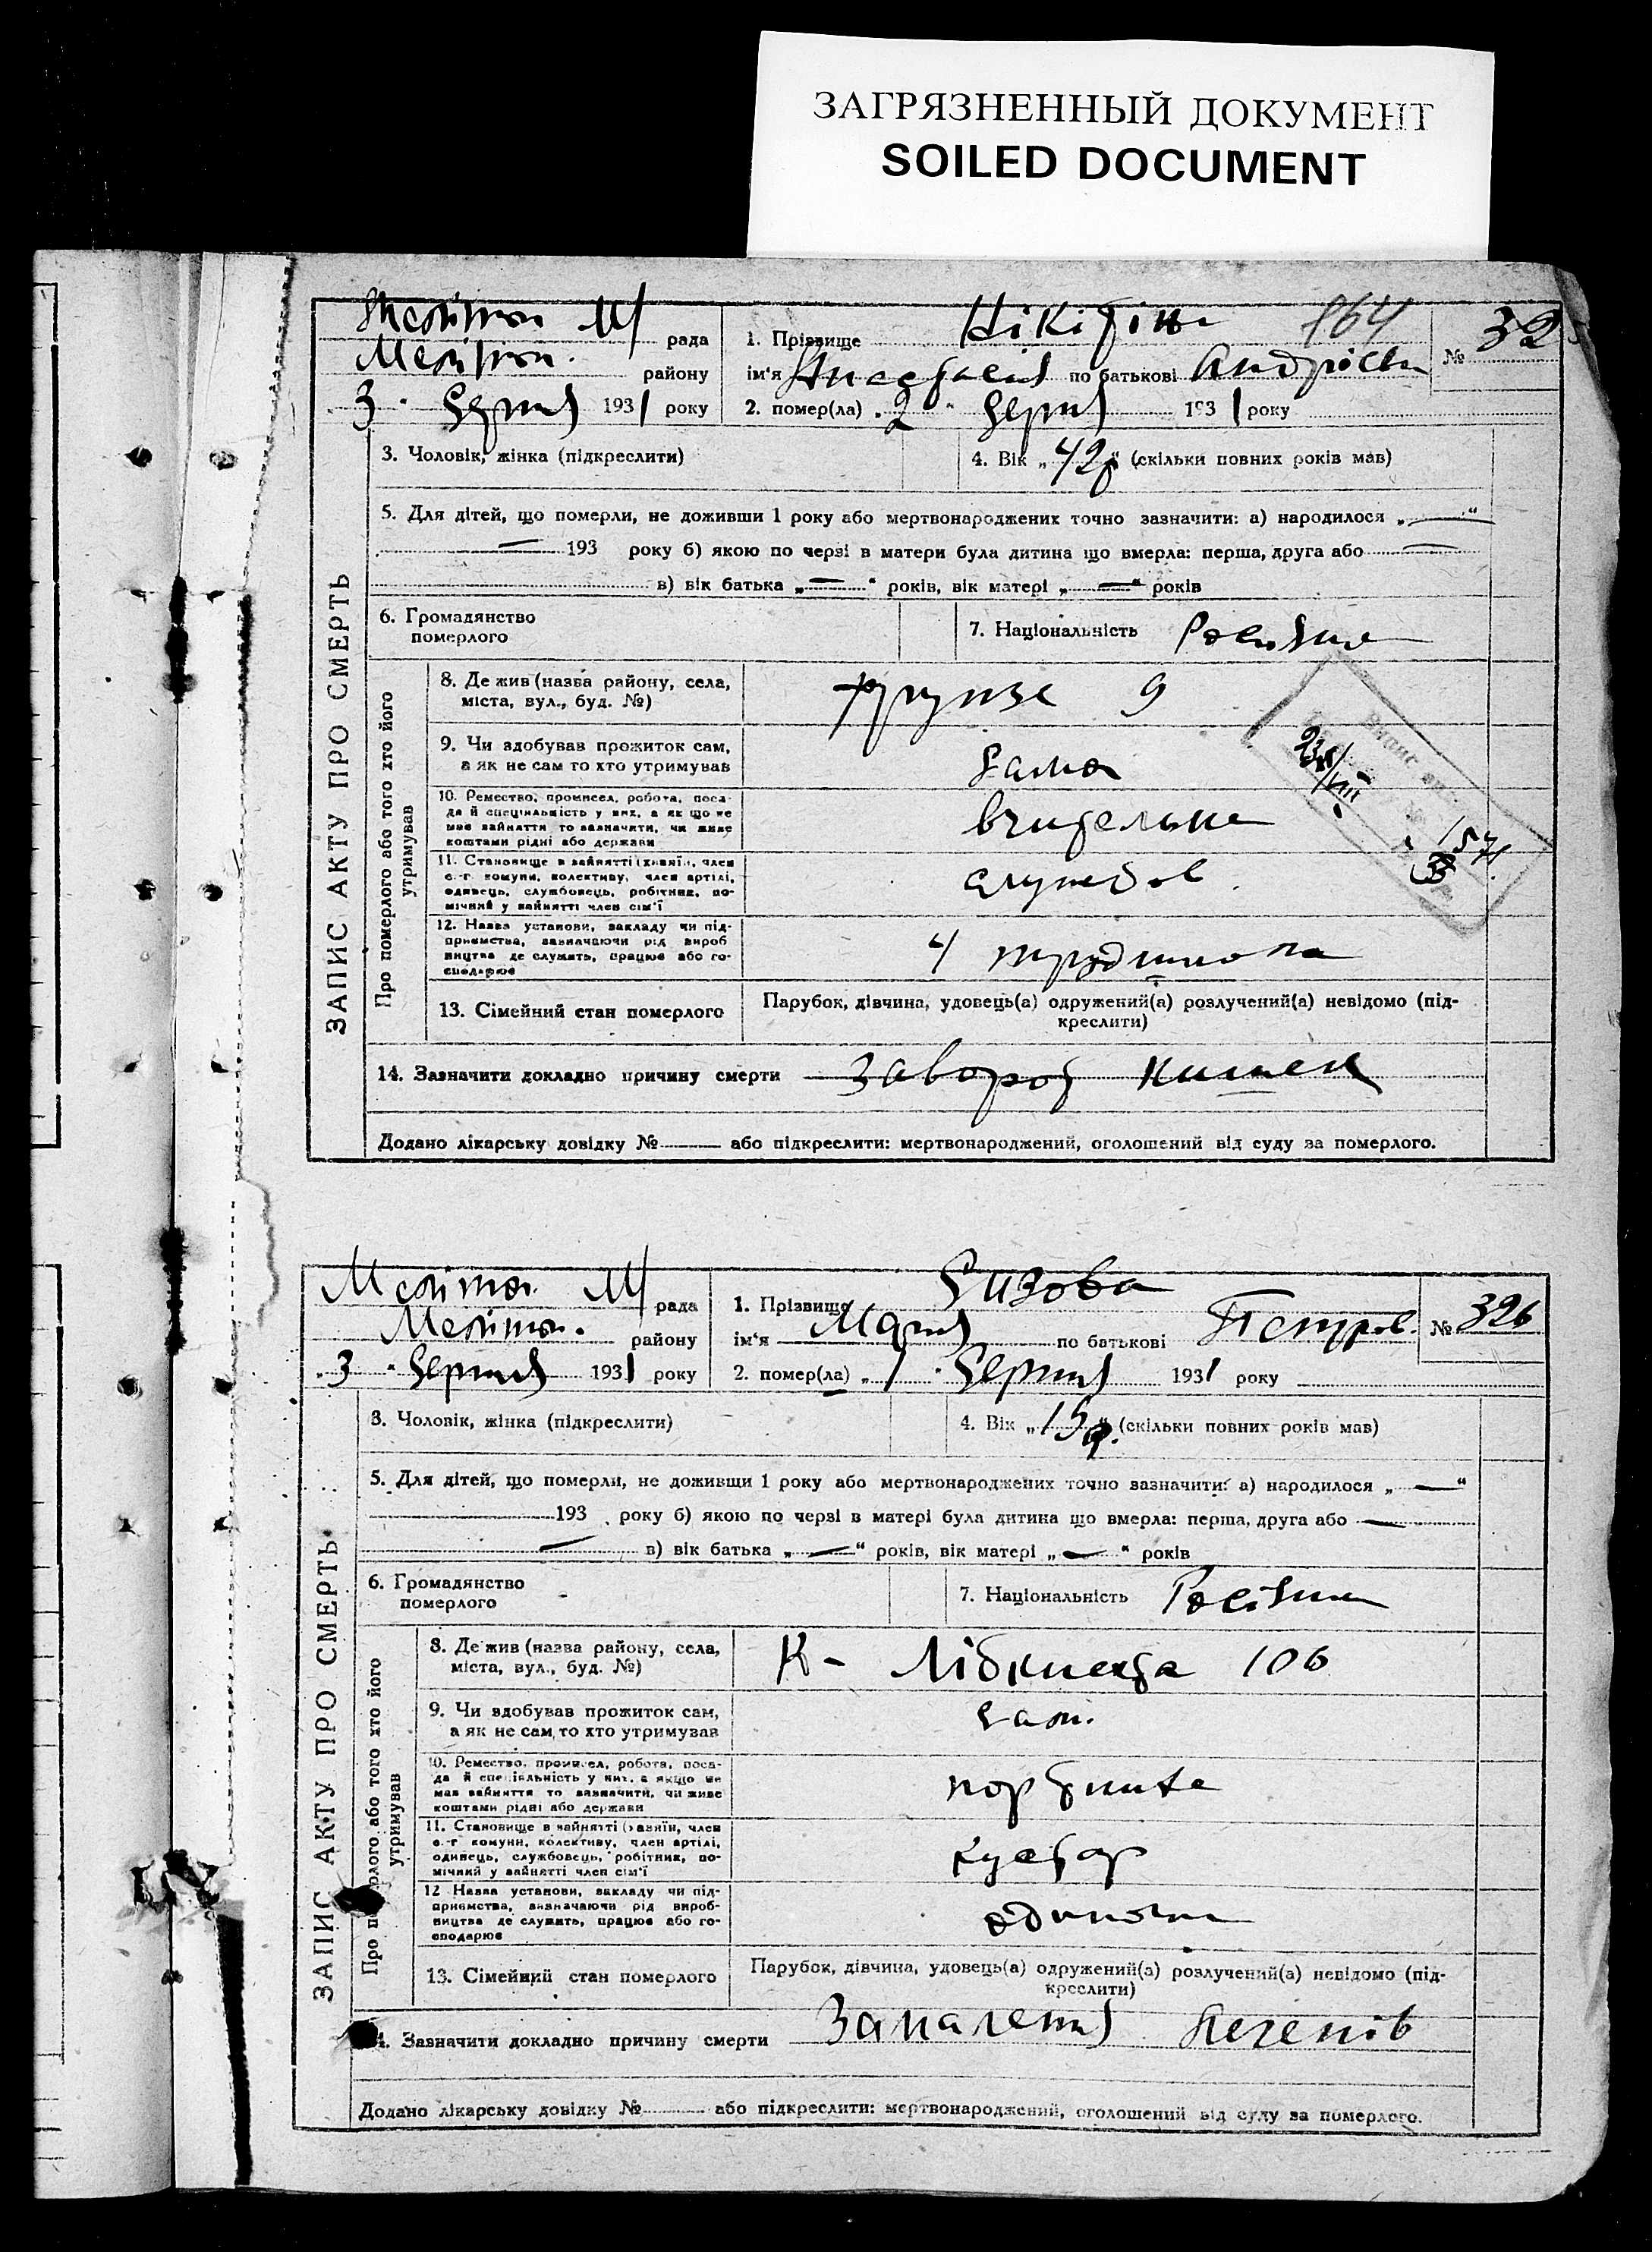 ЗАГРЯЗНЕННЫЙ ДОКУМЕНТ
SOILED DOCUMENT
ЗАПИС АКТУ ПРО СМЕРТЬ
рада
району
3 серпня 1931 року
1. Прізвище
№ 32
ім'я по батькові
2. помер(ла) „2“ серпня 1931 року
3. Чоловік, жінка (підкреслити)
4. Вік „42р“ (скільки повних років мав)
5. Для дітей, що померли, не доживши 1 року або мертвонароджених точно зазначити: а) народилося „—“
— 193 року б) якою по черзі в матери була дитина що вмерла: перша, друга або —
в) вік батька „—“ років, вік матері „—“ років
6. Громадянство
померлого
7. Національність
Про померлого або того хто його
утримував
8. Де жив (назва району, села,
міста, вул., буд. №)
Фрунзе 9
9. Чи здобував прожиток сам,
а як не сам то хто утримував
сама
10. Ремество, промисел, робота, поса-
да й спеціяльність у них, а як що не
мав зайняття то зазначити, чи живе
коштами рідні або держави
вчителька
11. Становище в зайнятті (хазяїн, член
с.-г. комуни, колективу, член артілі,
одинець, службовець, робітник, по-
мічний у зайнятті член сім'ї
службов.
12. Назва установи, закладу чи під-
приємства, зазначаючи рід вироб
ництва де служить, працює або го-
сподарює
4 трудшкола
13. Сімейний стан померлого
Парубок, дівчина, удовець(а) одружений(а) розлучений(а) невідомо (під-
креслити)
14. Зазначити докладно причину смерти заворот кишек
Додано лікарську довідку № —— або підкреслити: мертвонароджений, оголошений від суду за померлого.
ЗАПИС АКТУ ПРО СМЕРТЬ
рада
району
„3“ серпня 1931 року
1. Прізвище Сизова
№ 326
ім'я Марія по батькові Петров.
2. помер(ла) „1“ серпня 1931 року
3. Чоловік, жінка (підкреслити)
4. Вік (скільки повних років мав)
5. Для дітей, що померли, не доживши 1 року або мертвонароджених точно зазначити: а) народилося „—“
193 року б) якою по черзі в матері була дитина що вмерла: перша, друга або —
— в) вік батька „—“ років, вік матері „—“ років
6. Громадянство
померлого
7. Національність
утримував
8. Де жив (назва району, села,
міста, вул., буд. №)
К- Лібкнехта 106
9. Чи здобував прожиток сам,
а як не сам, то хто утримував
сам.
10. Ремество, промисел, робота, поса-
да й спеціяльність у них, а якщо не
мав зайняття то зазначити, чи живе
коштами рідні або держави
портниха
11. Становище в зайнятті (хазяїн, член
с.-г комуни, колективу, член артілі,
одинець, службовець, робітник, по-
мічний у зайнятті член сім'ї
кустар
12 Назва установи, закладу чи під-
приємства, зазначаючи рід вироб-
ництва де служить, працює або го-
сподарює
13. Сімейний стан померлого
Парубок, дівчина, удовець(а) одружений(а) розлучений(а) невідомо (під-
креслити)
Зазначити докладно причину смерти Запалення легенів
Додано лікарську довідку № або підкреслити: мертвонароджений, оголошений від суду за померлого.